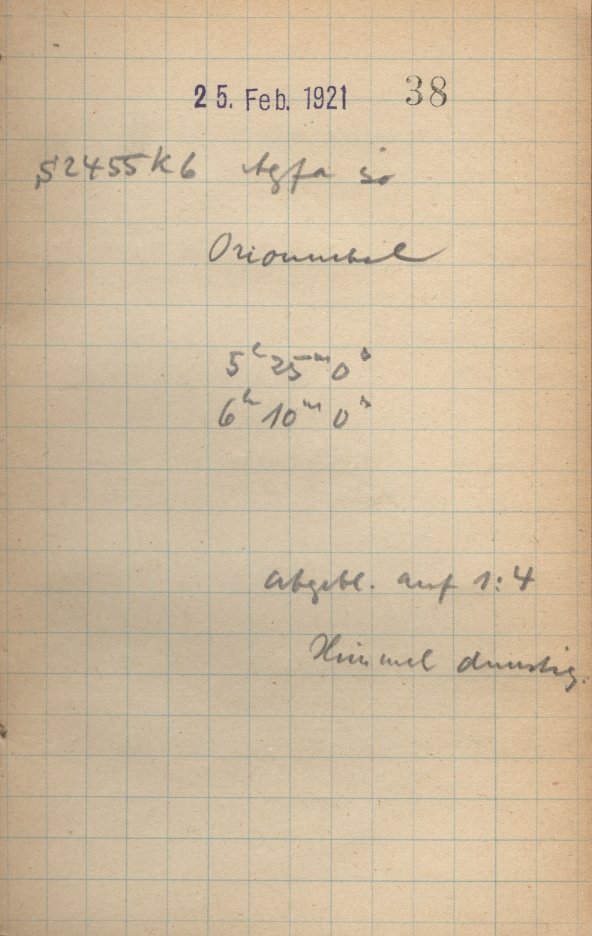 25. Feb. 1921 38
S2455Kb Agfa iso
Orionnebel
5h 25m 0s
6h 10m 0s
abgebl. auf 1:4
Himmel dunstig.